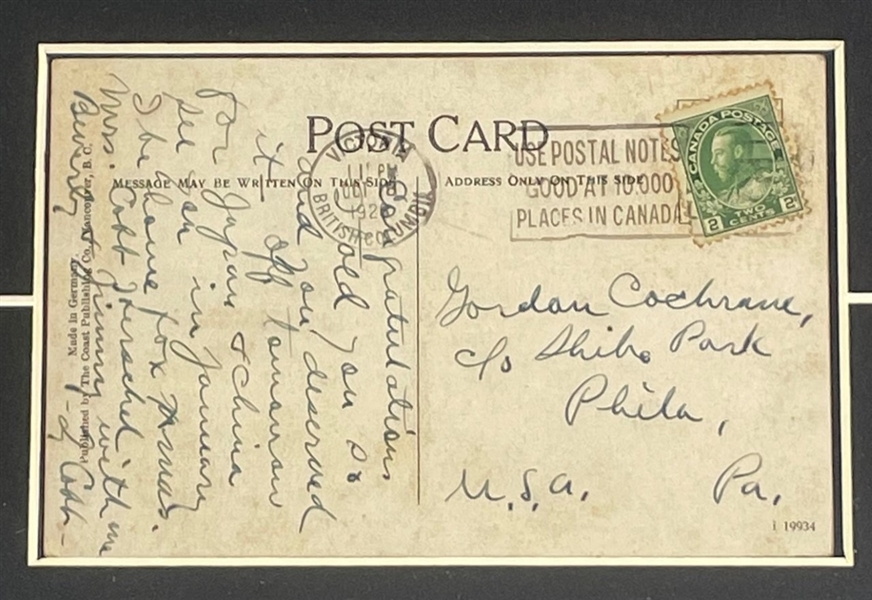 POST CARD
MESSAGE MAY BE WRITTEN ON THIS SIDE
ADDRESS ONLY ON THIS SIDE
VICTORIA
PM
192
BRITISH COLUMBIA
USE POSTAL NOTES
GOOD AT 10,000
PLACES IN CANADA
CANADA POSTAGE
2 TWO CENTS 2
Congratulations
told you so
and you deserved
it off tomorrow
for Japan & China
see you in January
I be home for Xmas.
Mrs. Cobb Herschel with me
Beverly Jimmy
- Ty Cobb -
Gordon Cochrane,
c/o Shibe Park
Phila,
U.S.A. Pa.
Made in Germany.
Published by The Coast Publishing Co., Vancouver, B.C.
i 19934